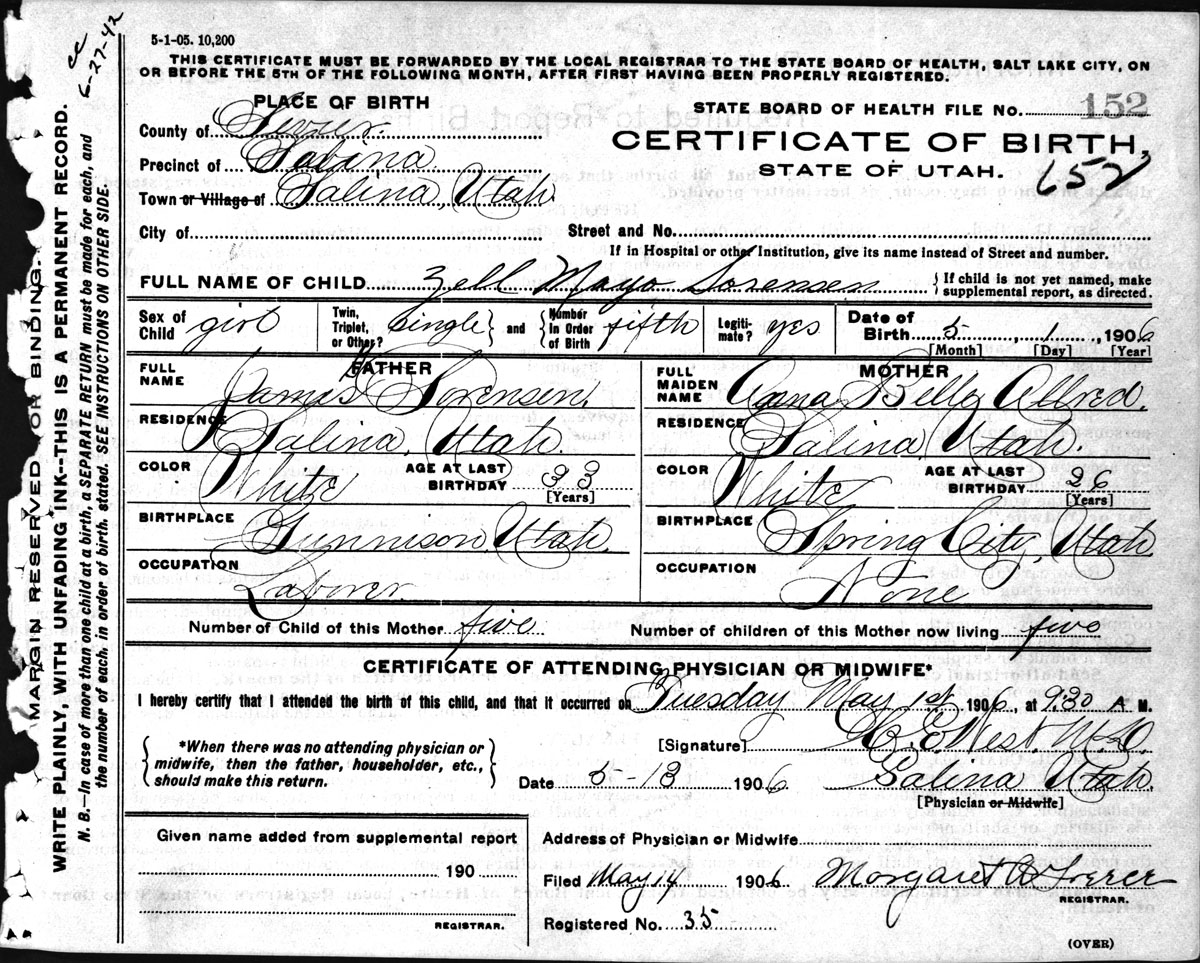 cc
5-27-42
5-1-05. 10,200
THIS CERTIFICATE MUST BE FORWARDED BY THE LOCAL REGISTRAR TO THE STATE BOARD OF HEALTH, SALT LAKE CITY, ON
OR BEFORE THE 5TH OF THE FOLLOWING MONTH, AFTER FIRST HAVING BEEN PROPERLY REGISTERED.
PLACE OF BIRTH
STATE BOARD OF HEALTH FILE No. 152
County of Sevier.
CERTIFICATE OF BIRTH,
Precinct of Salina
STATE OF UTAH.
652
Town or Village of Salina, Utah
City of
Street and No.
If in Hospital or other Institution, give its name instead of Street and number.
FULL NAME OF CHILD Zell Mayo Sorensen {If child is not yet named, make supplemental report, as directed.
Sex of Child girl Twin, Triplet, or Other? single} and {Number In Order of Birth fifth Legitimate? yes Date of Birth 5, 1, 1906
[Month] [Day] [Year]
FATHER
MOTHER
FULL NAME James Sorensen.
FULL MAIDEN NAME Anna Belle Allred.
RESIDENCE Salina, Utah.
RESIDENCE Salina Utah.
COLOR White AGE AT LAST BIRTHDAY 33 [Years]
COLOR White AGE AT LAST BIRTHDAY 26 [Years]
BIRTHPLACE Gunnison, Utah.
BIRTHPLACE Spring City, Utah.
OCCUPATION Laborer
OCCUPATION None
Number of Child of this Mother five Number of children of this Mother now living five
CERTIFICATE OF ATTENDING PHYSICIAN OR MIDWIFE*
I hereby certify that I attended the birth of this child, and that it occurred on Tuesday May 1st 1906, at 9:30 A M.
{*When there was no attending physician or
midwife, then the father, householder, etc.,
should make this return.}
[Signature] West, M.D.
Date 5-13 1906 Salina Utah.
[Physician or Midwife]
Given name added from supplemental report
Address of Physician or Midwife
190
Filed May 14 1906 Margaret
REGISTRAR.
REGISTRAR.
Registered No. 35
(OVER)
MARGIN RESERVED FOR BINDING.
WRITE PLAINLY, WITH UNFADING INK--THIS IS A PERMANENT RECORD.
N. B.—In case of more than one child at a birth, a SEPARATE RETURN must be made for each, and
the number of each, in order of birth, stated. SEE INSTRUCTIONS ON OTHER SIDE.